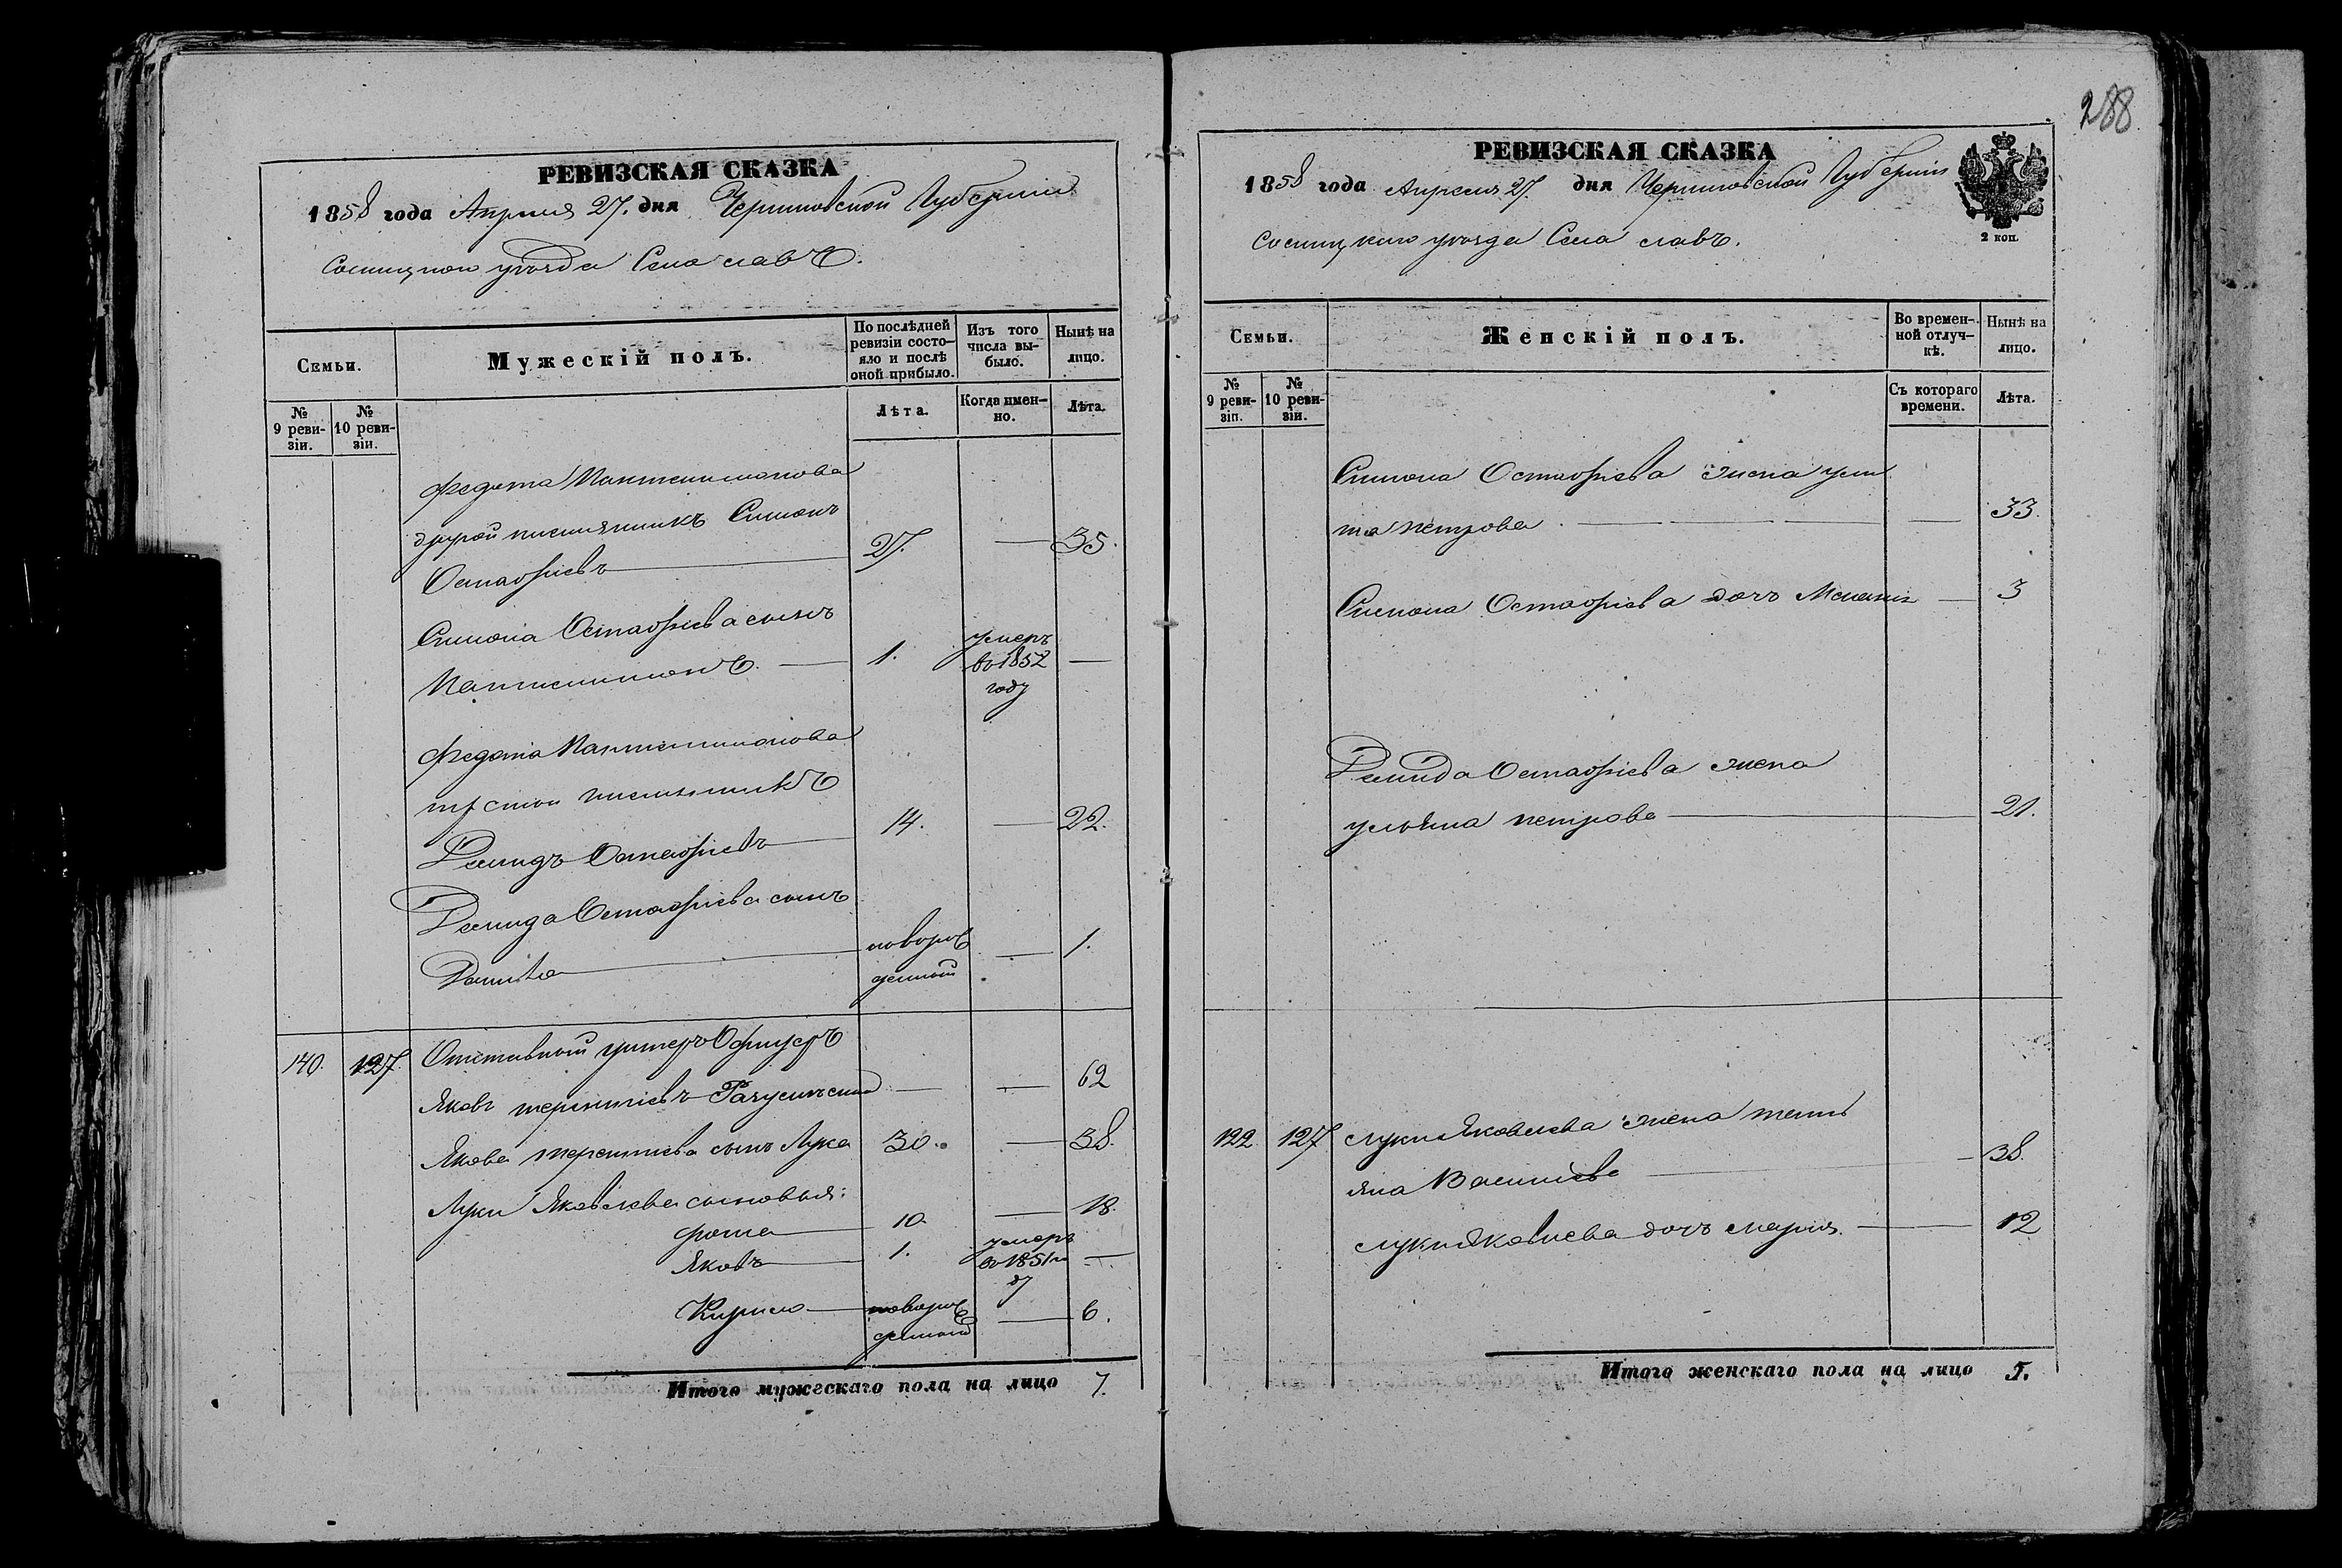 РЕВИЗСКАЯ СКАЗКА
1858 года Апреля 27. дня Черниговской Губерніи
Сосницкого уезда Села Савъ.
Семьи.
Мужескій полъ.
По послѣдней ревизіи состо-
яло и послѣ
оной прибыло.
Изъ того
числа вы-
было.
Нынѣ на
лицо.
№
9 реви-
зіи.
№
10 реви-
зіи.
Лѣта.
Когда имен-
но.
Лѣта.
Федота Пантелимонова
другой племянникъ Симонъ
Остафіевъ 27. — 35.
Симона Остафіева сынъ
Пантелимонъ. — 1. умеръ во 1852 году —
Федота Пантелимонова
третий племянникъ
Демидъ Остафіевъ 14. — 22.
Демида Остафіева сынъ
Данило новорож денный — 1.
140. 127. Отставный унтеръ Офицеръ
Яковъ терентіевъ — — 62
Якова терентиева сынъ Лука 30. — 38.
Луки Яковлева сыновья:
фома 10. — 18.
Яковъ 1. умеръ во 1851 го ду —
Кирило новорож денный — 6.
Итого мужескаго пола на лицо 7.
288
РЕВИЗСКАЯ СКАЗКА
1858 года Апреля 27. дня Черниговской Губерніи
2 коп.
Сосницкаго уезда Села Савъ.
Семьи.
Женскій полъ.
Во времен-
ной отлуч-
кѣ.
Нынѣ на
лицо.
№
9 реви-
зіи.
№
10 реви-
зіи.
Съ котораго
времени.
Лѣта.
Симона Остафіева жена Ули
та петрова. — — 33.
Симона Остафіева дочъ Меланія — 3
Демида Остафіева жена
ульяна петрова — 21.
122 127 луки Яковлева жена тать
яна Василіева — 38.
луки Яковлева дочъ марія. — 12
Итого женскаго пола на лицо 5.